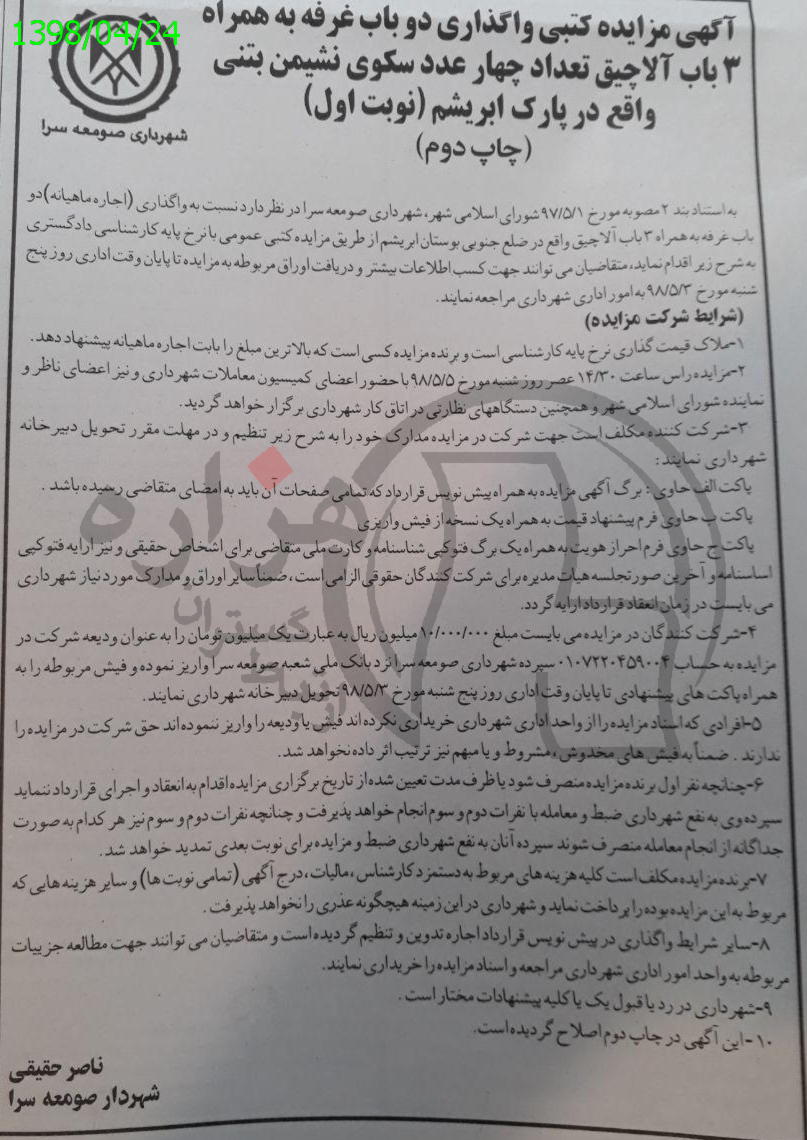 1398/04/24
آگهی مزایده کتبی واگذاری دو باب غرفه به همراه
۳ باب آلاچیق تعداد چهار عدد سکوی نشیمن بتنی
واقع در پارک ابریشم (نوبت اول)
(چاپ دوم)
شهرداری صومعه سرا
به استناد بند ۲ مصوبه مورخ ۹۷/۵/۱ شورای اسلامی شهر، شهرداری صومعه سرا در نظر دارد نسبت به واگذاری (اجاره ماهیانه) دو
باب غرفه به همراه ۳ باب آلاچیق واقع در ضلع جنوبی بوستان ابریشم از طریق مزایده کتبی عمومی با نرخ پایه کارشناسی دادگستری
به شرح زیر اقدام نماید، متقاضیان می توانند جهت کسب اطلاعات بیشتر و دریافت اوراق مربوطه به مزایده تا پایان وقت اداری روز پنج
شنبه مورخ ۹۸/۵/۳ به امور اداری شهرداری مراجعه نمایند.
(شرایط شرکت مزایده)
۱-ملاک قیمت گذاری نرخ پایه کارشناسی است و برنده مزایده کسی است که بالاترین مبلغ را بابت اجاره ماهیانه پیشنهاد دهد.
۲-مزایده راس ساعت ۱۴/۳۰ عصر روز شنبه مورخ ۹۸/۵/۵ با حضور اعضای کمیسیون معاملات شهرداری و نیز اعضای ناظر و
نماینده شورای اسلامی شهر و همچنین دستگاههای نظارتی در اتاق کار شهرداری برگزار خواهد گردید.
۳-شرکت کننده مکلف است جهت شرکت در مزایده مدارک خود را به شرح زیر تنظیم و در مهلت مقرر تحویل دبیرخانه
شهرداری نمایند:
پاکت الف حاوی: برگ آگهی مزایده به همراه پیش نویس قرارداد که تمامی صفحات آن باید به امضای متقاضی رسیده باشد.
پاکت ب حاوی فرم پیشنهاد قیمت به همراه یک نسخه از فیش واریزی
پاکت ج حاوی فرم احراز هویت به همراه یک برگ فتوکپی شناسنامه و کارت ملی متقاضی برای اشخاص حقیقی و نیز ارایه فتوکپی
اساسنامه و آخرین صورتجلسه هیات مدیره برای شرکت کنندگان حقوقی الزامی است، ضمناً سایر اوراق و مدارک مورد نیاز شهرداری
می بایست در زمان انعقاد قرارداد ارایه گردد.
۴-شرکت کنندگان در مزایده می بایست مبلغ ۱۰/۰۰۰/۰۰۰ میلیون ریال به عبارت یک میلیون تومان را به عنوان ودیعه شرکت در
مزایده به حساب ۰۱۰۷۲۲۰۴۵۹۰۰۴ سپرده شهرداری صومعه سرا نزد بانک ملی شعبه صومعه سرا واریز نموده و فیش مربوطه را به
همراه پاکت های پیشنهادی تا پایان وقت اداری روز پنج شنبه مورخ ۹۸/۵/۳ تحویل دبیرخانه شهرداری نمایند.
۵-افرادی که اسناد مزایده را از واحد اداری شهرداری خریداری نکرده اند فیش یا ودیعه را واریز ننموده اند حق شرکت در مزایده را
ندارند. ضمناً به فیش های مخدوش، مشروط و یا مبهم نیز ترتیب اثر داده نخواهد شد.
۶-چنانچه نفر اول برنده مزایده منصرف شود یا ظرف مدت تعیین شده از تاریخ برگزاری مزایده اقدام به انعقاد و اجرای قرارداد ننماید
سپرده وی به نفع شهرداری ضبط و معامله با نفرات دوم و سوم انجام خواهد پذیرفت و چنانچه نفرات دوم و سوم نیز هر کدام به صورت
جداگانه از انجام معامله منصرف شوند سپرده آنان به نفع شهرداری ضبط و مزایده برای نوبت بعدی تمدید خواهد شد.
۷-برنده مزایده مکلف است کلیه هزینه های مربوط به دستمزد کارشناس، مالیات، درج آگهی (تمامی نوبت ها) و سایر هزینه هایی که
مربوط به این مزایده بوده را پرداخت نماید و شهرداری در این زمینه هیچگونه عذری را نخواهد پذیرفت.
۸-سایر شرایط واگذاری در پیش نویس قرارداد اجاره تدوین و تنظیم گردیده است و متقاضیان می توانند جهت مطالعه جزییات
مربوطه به واحد امور اداری شهرداری مراجعه و اسناد مزایده را خریداری نمایند.
۹-شهرداری در رد یا قبول یک یا کلیه پیشنهادات مختار است.
۱۰-این آگهی در چاپ دوم اصلاح گردیده است.
ناصر حقیقی
شهردار صومعه سرا
هزاره